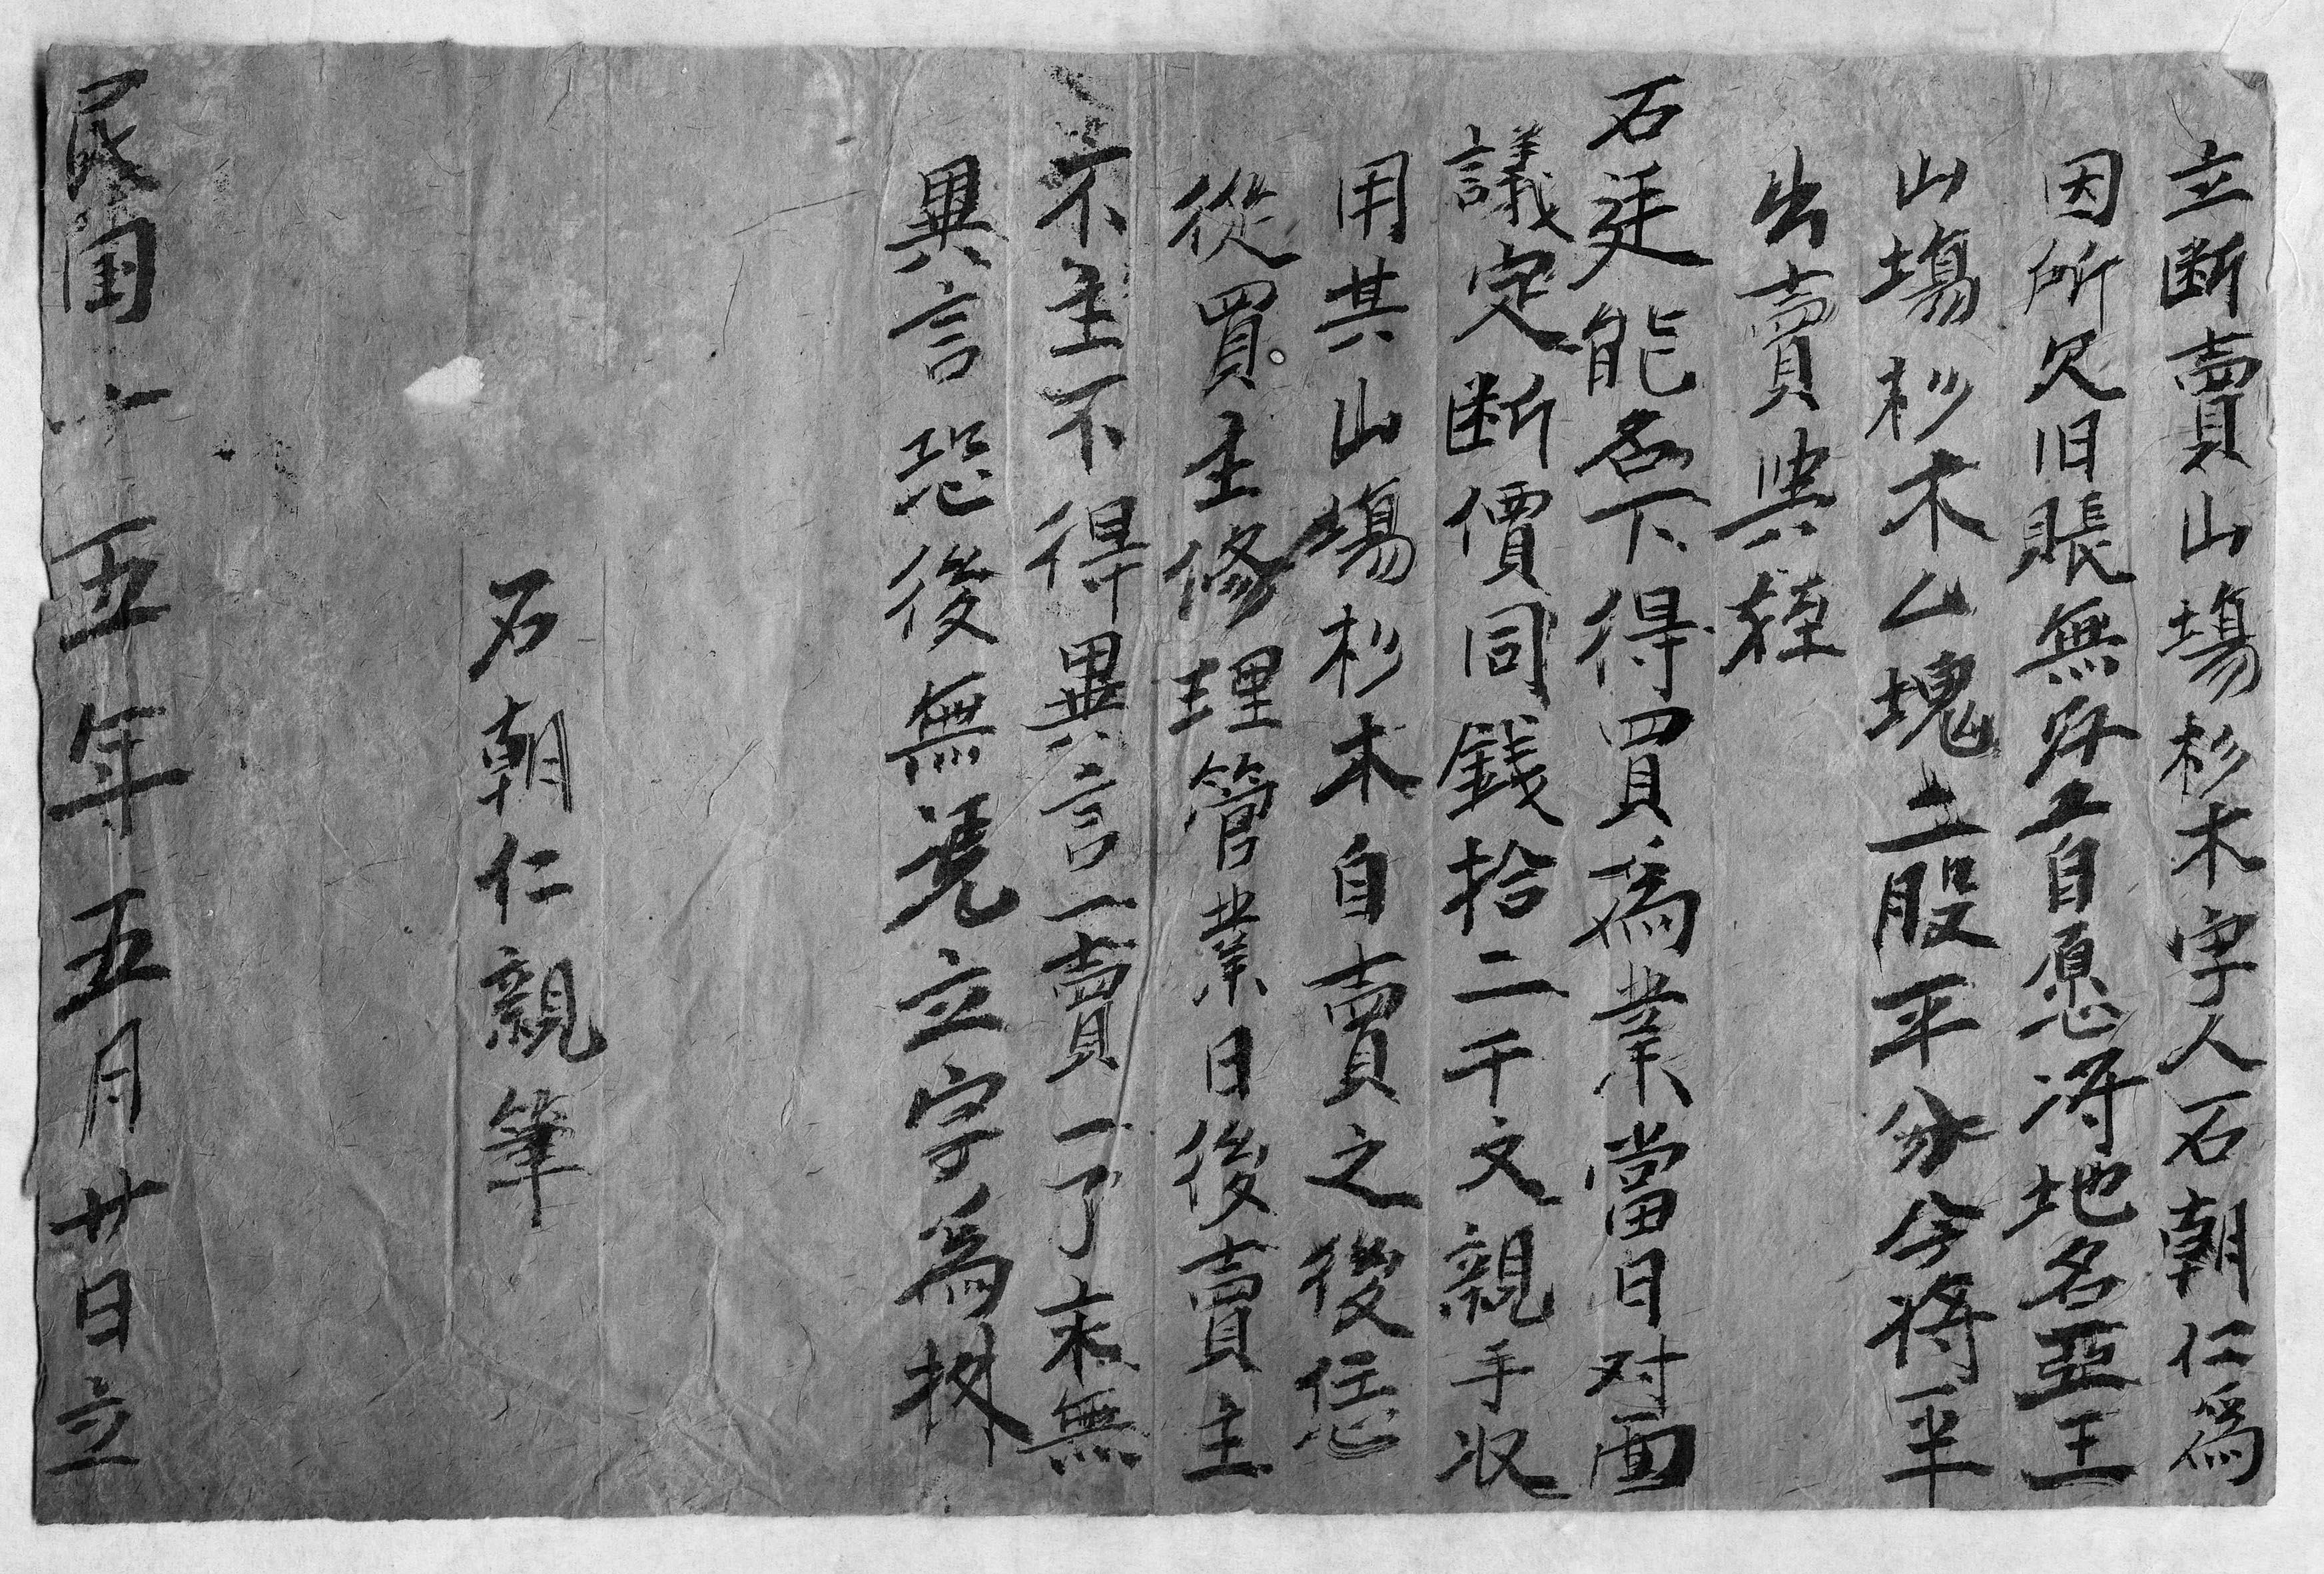 立断賣山塲杉木字人石朝仁爲
因所欠旧賬無路自愿将地名亞王
山塲杉木乙塊二股平分今将一半
出賣與姪
石廷能名下得買爲業當日对面
議定断價同錢拾二千文親手收
用其山塲杉木自賣之後任憑
從買主修理管業日後賣主
不主不得異言一賣一了末無
異言恐後無凭立字爲拠
石朝仁親筆
民国十五年五月廿日立